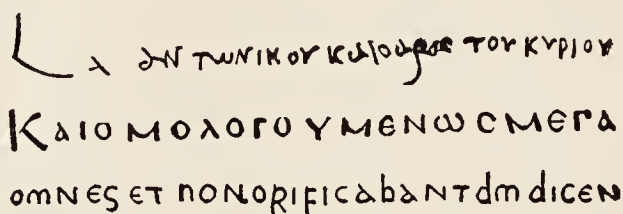 L λ αντωνικου καισαρος του κυριου
ΚαιομολογουμενωϲμεΓα
omNes eT nonorificabaNTdm diceN